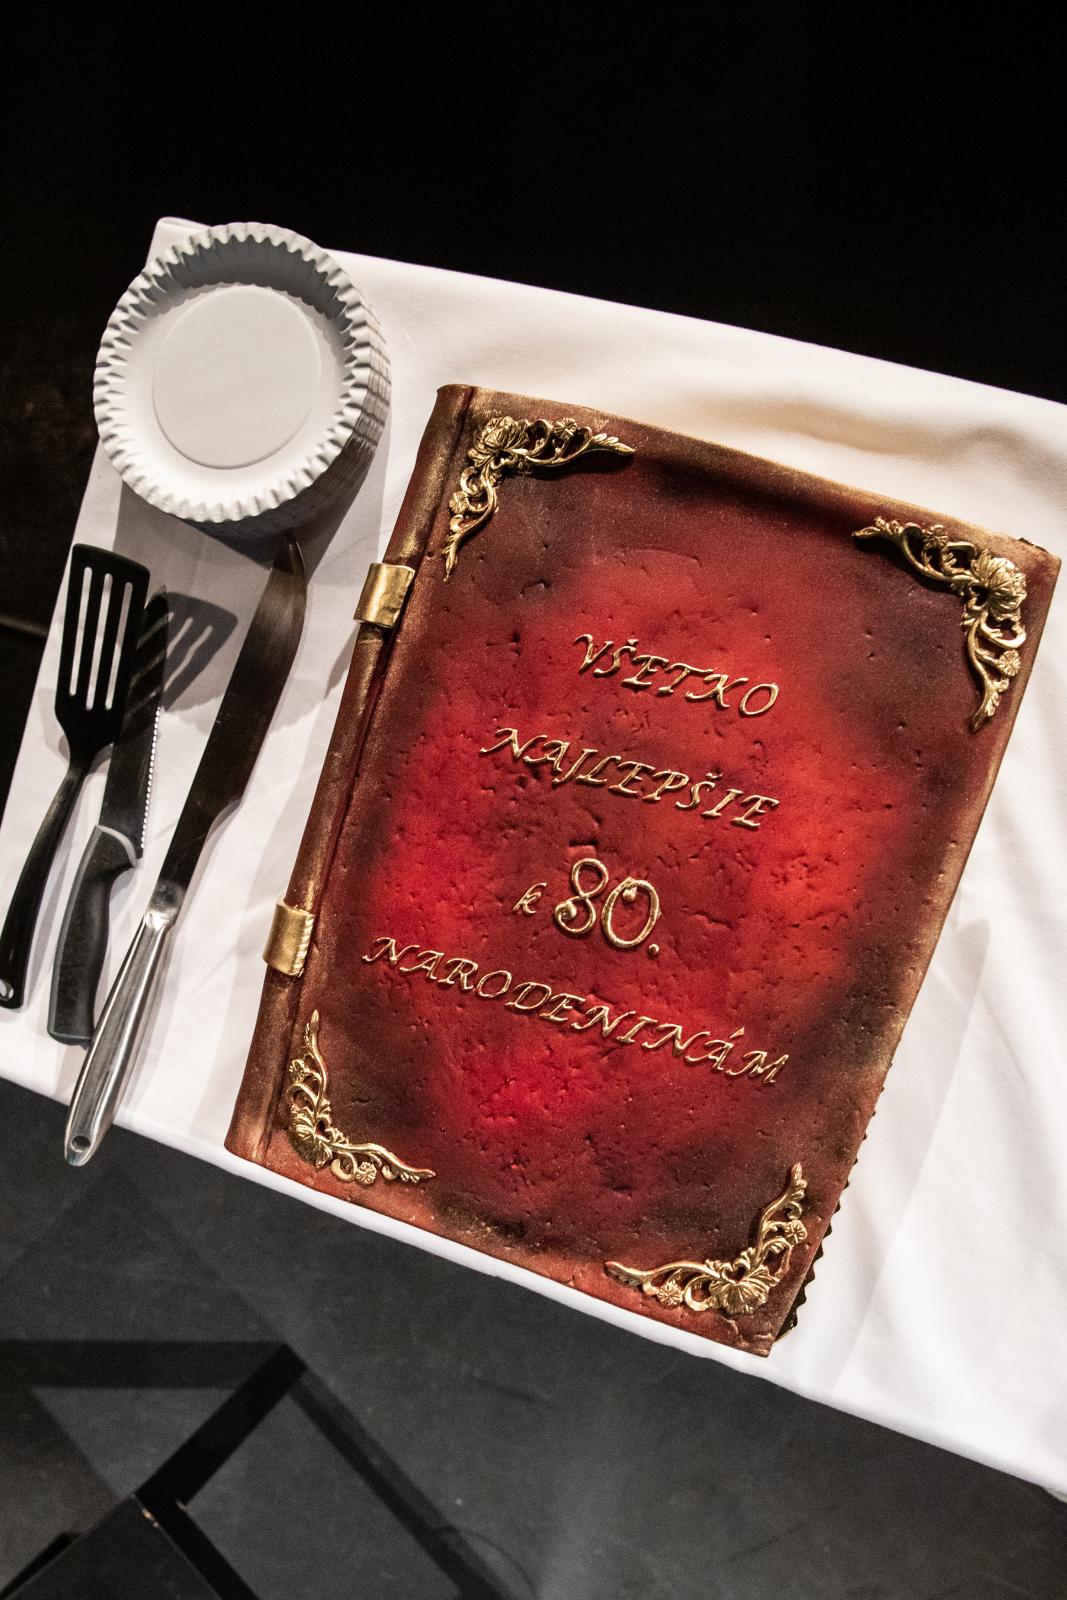 VŠETKO
NAJLEPŠIE
k 80.
NARODENINÁM